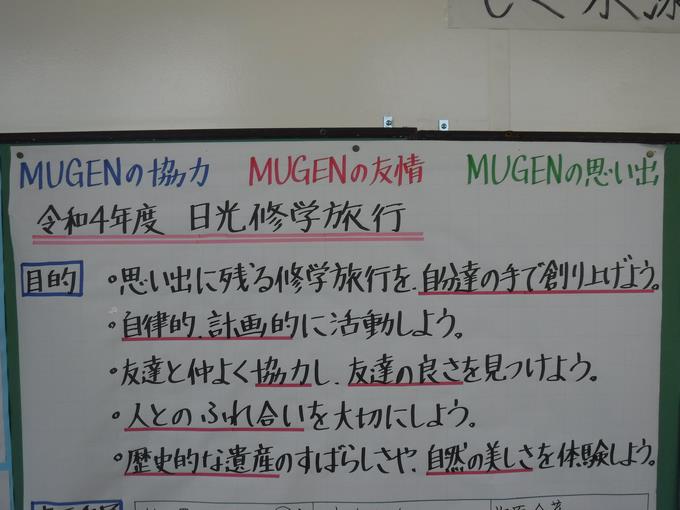 MUGENの協力 MUGENの友情 MUGENの思い出
令和4年度 日光修学旅行
目的 ・思い出に残る修学旅行を、自分達の手で創り上げよう。
・自律的、計画的に活動しよう。
・友達と仲よく協力し、友達の良さを見つけよう。
・人とのふれ合いを大切にしよう。
・歴史的な遺産のすばらしさや、自然の美しさを体験しよう。